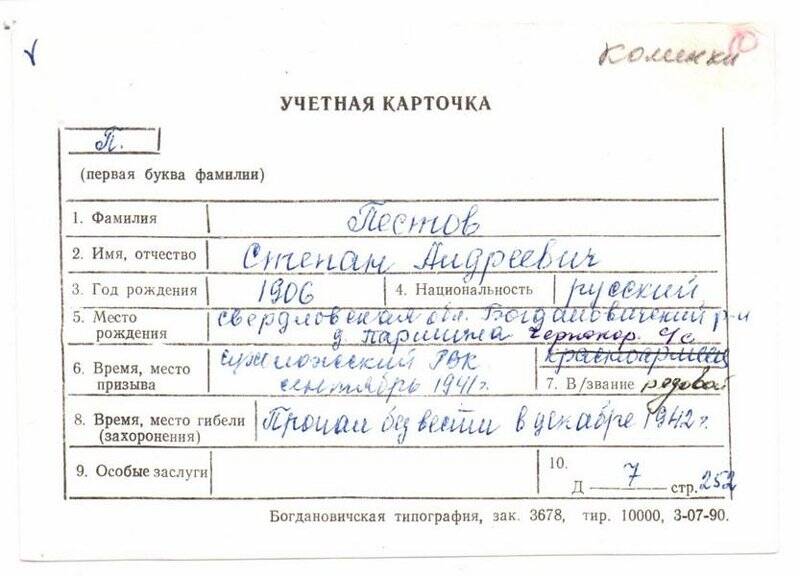 Коменки
УЧЕТНАЯ КАРТОЧКА
П.
(первая буква фамилии)
1. Фамилия Пестов
2. Имя, отчество Степан Андреевич
3. Год рождения 1906 4. Национальность русский
5. Место рождения Свердловская обл. Богдановичский р-н
д. Паршина Чернокор. с/с
6. Время, место призыва Сухоложский РВК
сентябрь 1941 г.
красноармеец
7. В/звание рядовой
8. Время, место гибели (захоронения) Пропал без вести в декабре 1942 г.
9. Особые заслуги
10.
Д 7 стр. 252
Богдановичская типография, зак. 3678, тир. 10000, 3-07-90.